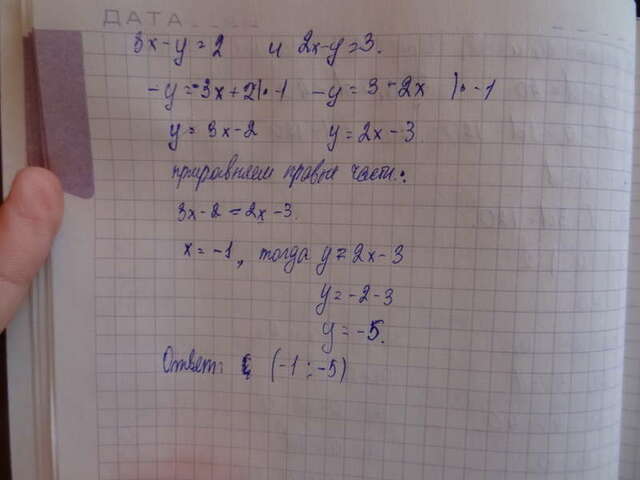 ДАТА
3x-y=2 и 2x-y=3.
-y=-3x+2|·-1 -y=3-2x |·-1
y=3x-2 y=2x-3.
приравняем правые части:
3x-2=2x-3.
x=-1, тогда y=2x-3
y=-2-3
y=-5.
Ответ: (-1;-5)